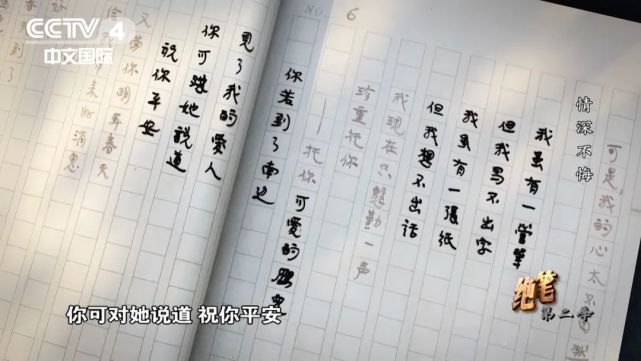 CCTV 4
中文国际
6
可是,我的心太
情深不悔
我虽有一管笔
但我写不出字
我虽有一張纸
但我想不出话
我现在只慇勤一声
珍重托你
托你 可爱的
你若到了南边
見了我的爱人
你可对她説道
祝你平安
又梦你明年春天
你可对她说道 祝你平安
绝笔
第二季